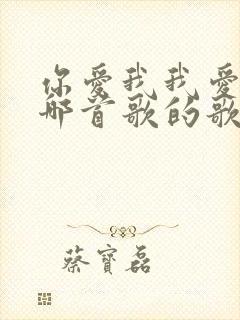 你愛我我愛
那首歌的歌
蔡寶磊